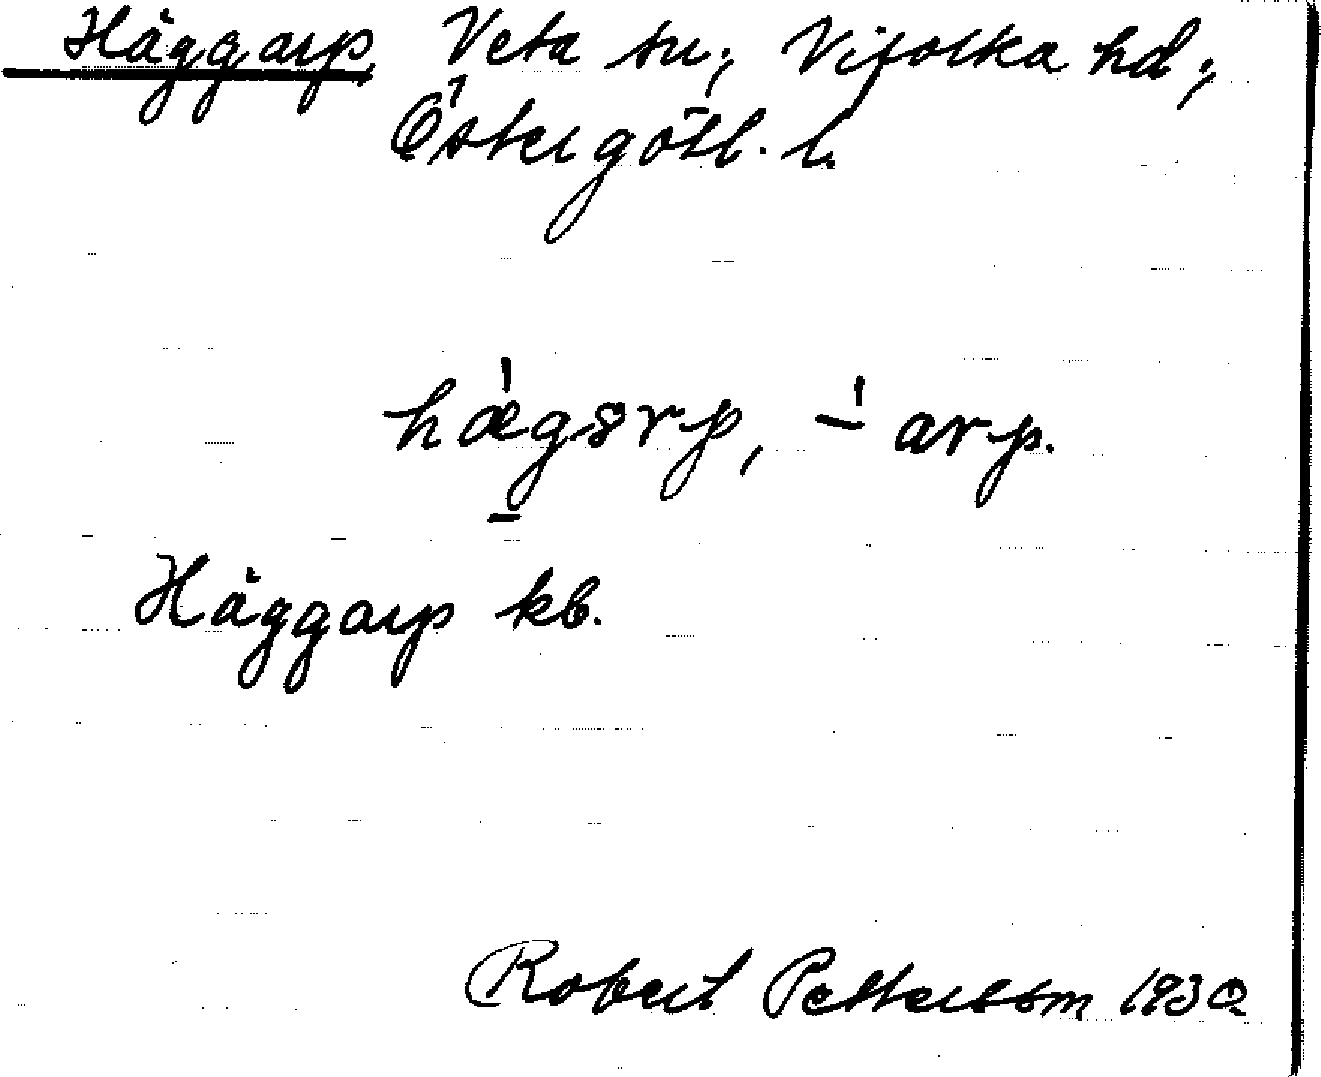 Häggarp, Veta sn; Vifolka hd;
Östergötl. l.
hægərp, -́ arp.
Häggarp kb.
Robert Pettersson 1930